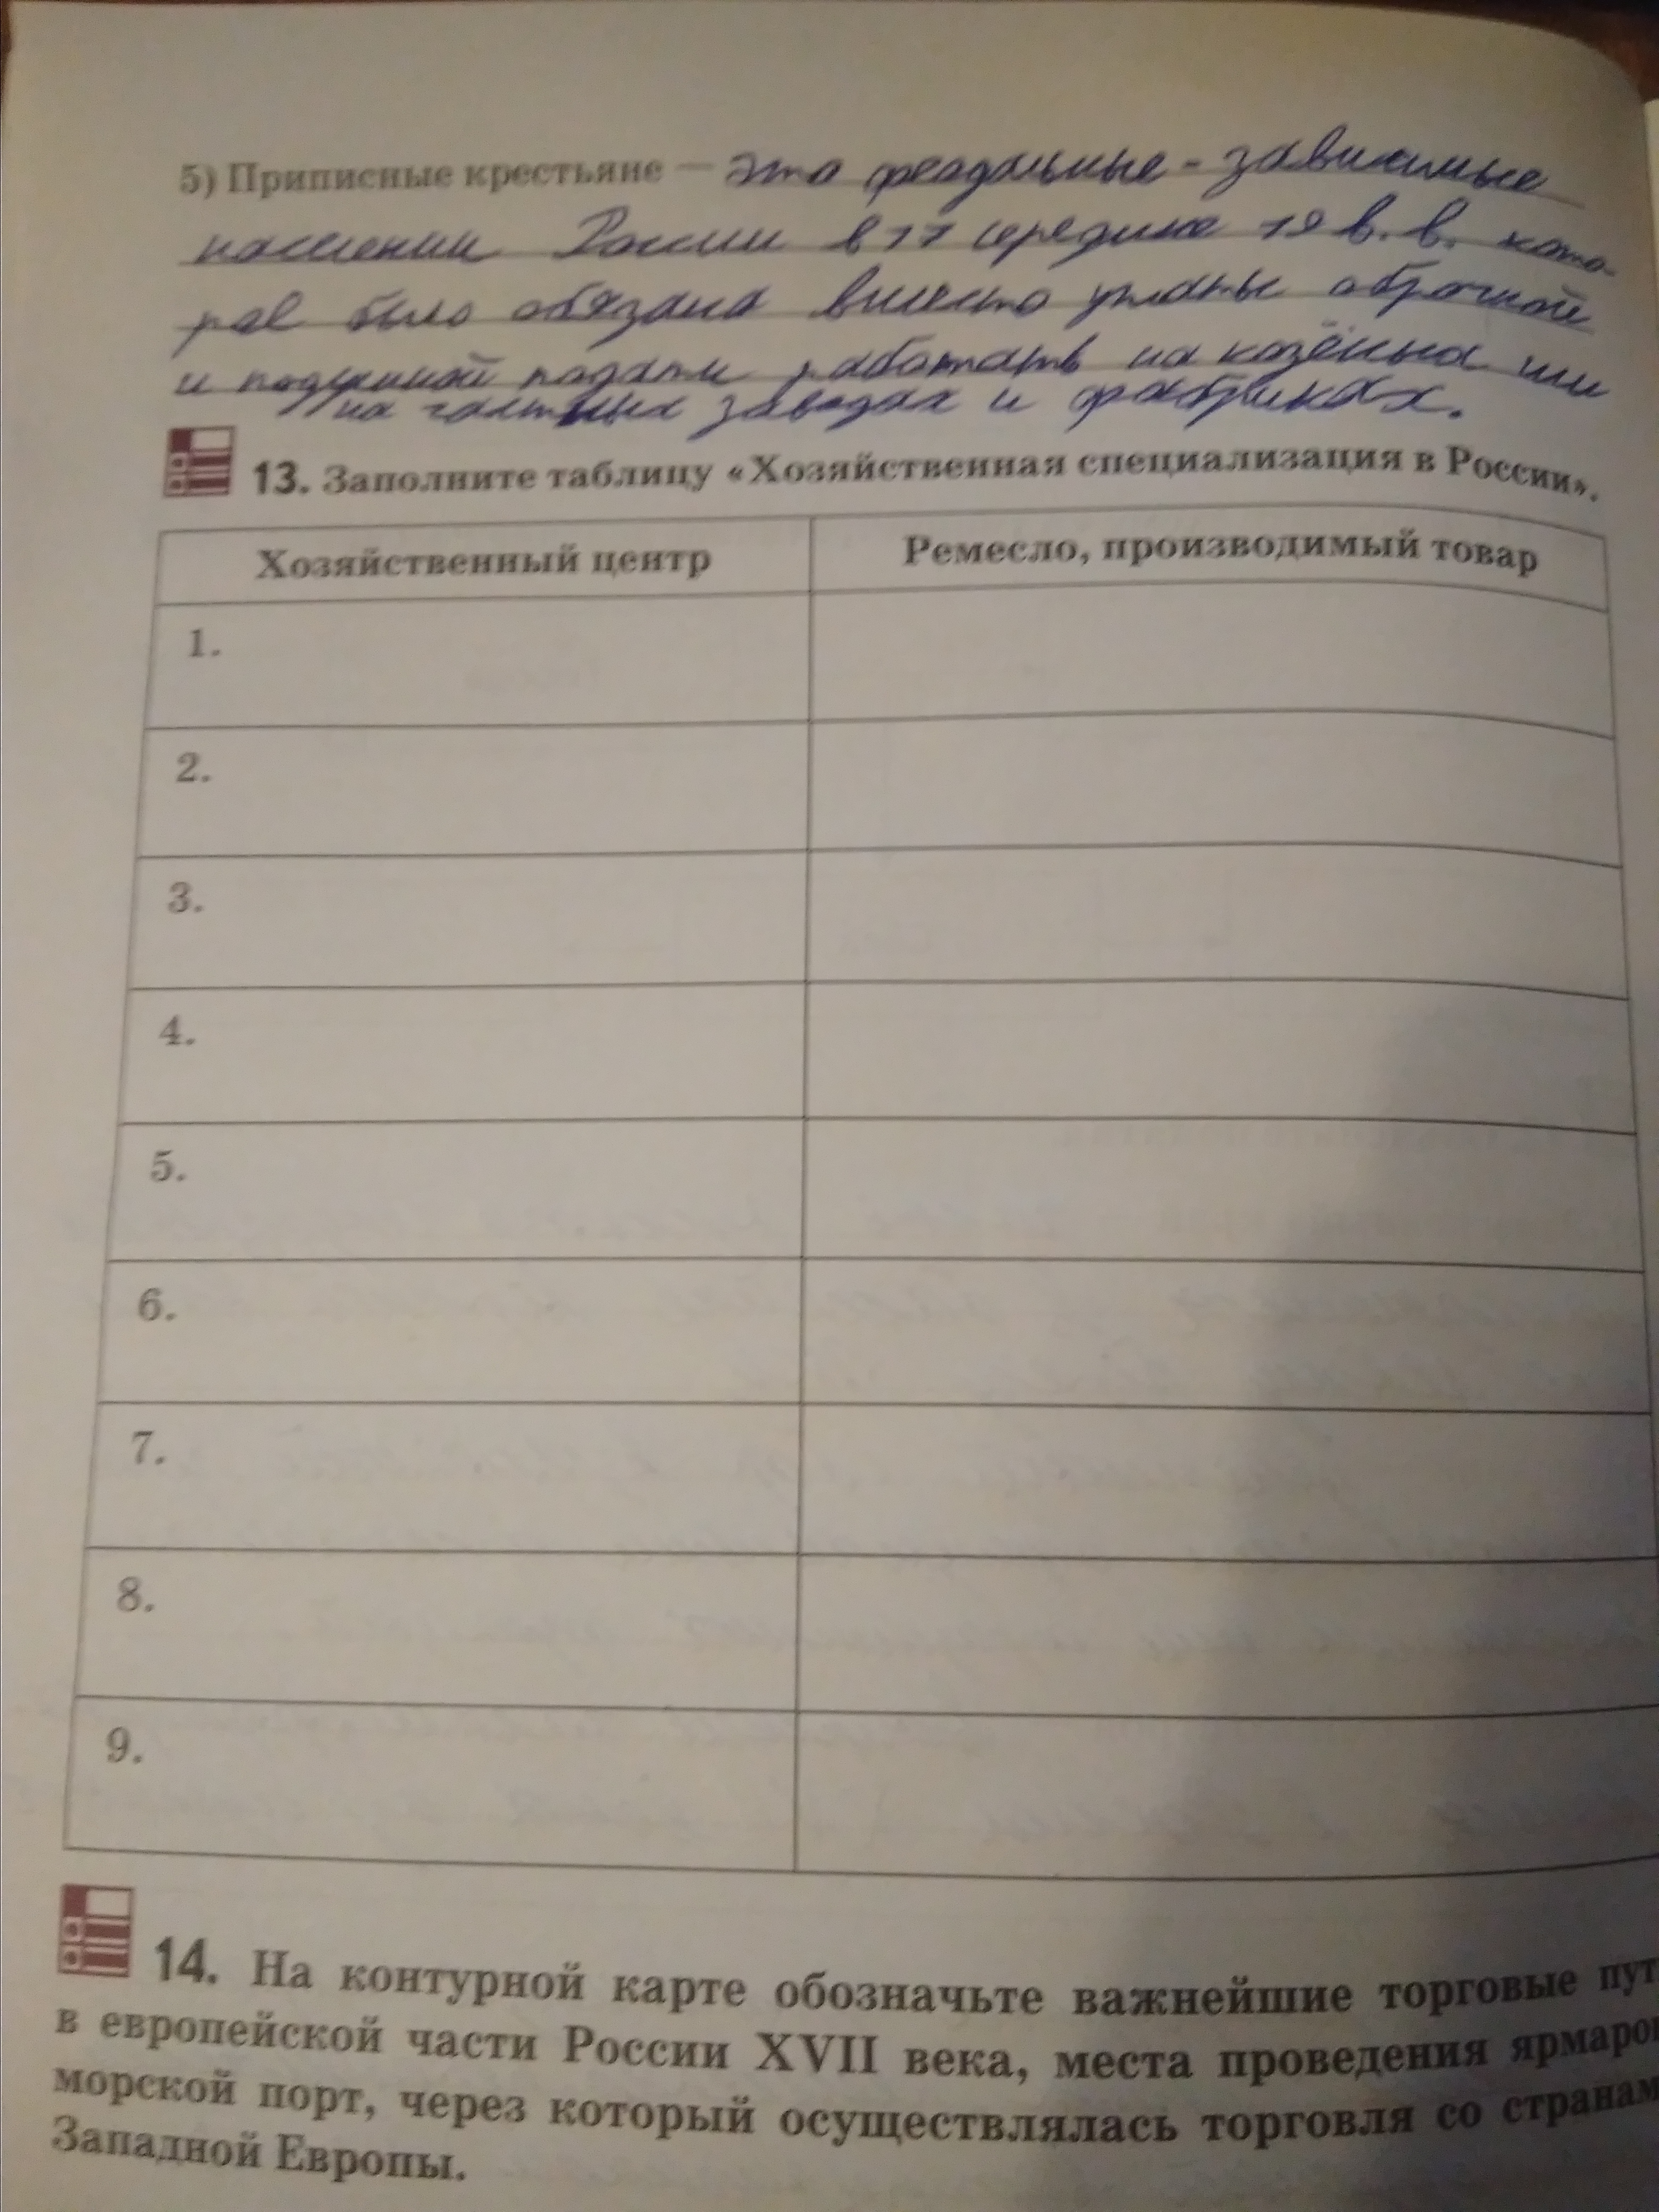 5) Приписные крестьяне — это феодальные - зависимые
населении России в 17 середине 19 в. в. кото-
рае было обязана вместо уплаты оброчной
и подушной подати работать на казённых или
на частных заводах и фабриках.
13. Заполните таблицу «Хозяйственная специализация в России».
Хозяйственный центр Ремесло, производимый товар
1.
2.
3.
4.
5.
6.
7.
8.
9.
14. На контурной карте обозначьте важнейшие торговые пут
в европейской части России XVII века, места проведения ярмарок
морской порт, через который осуществлялась торговля со странам
Западной Европы.